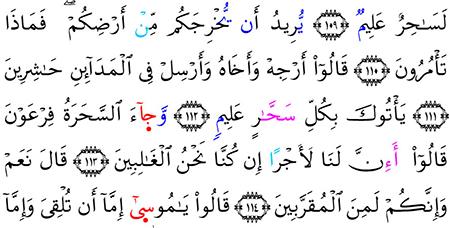 لَسَٰحِرٌ عَلِيمٌ ١٠٩ يُّرِيدُ أَن يُّخْرِجَكُم مِّنْ أَرْضِكُمْۖ فَمَاذَا
تَأْمُرُونَ ١١٠ قَالُوٓا۟ أَرْجِهْ وَأَخَاهُ وَأَرْسِلْ فِي ٱلْمَدَآئِنِ حَٰشِرِينَ
١١١ يَأْتُوكَ بِكُلِّ سَحَّٰرٍ عَلِيمٖ ١١٢ وَّجَآءَ ٱلسَّحَرَةُ فِرْعَوْنَ
قَالُوٓا۟ أَءِنَّ لَنَا لَأَجْرًا إِن كُنَّا نَحْنُ ٱلْغَٰلِبِينَ ١١٣ قَالَ نَعَمْ
وَإِنَّكُمْ لَمِنَ ٱلْمُقَرَّبِينَ ١١٤ قَالُوا۟ يَٰمُوسَىٰٓ إِمَّآ أَن تُلْقِىَ وَإِمَّآ